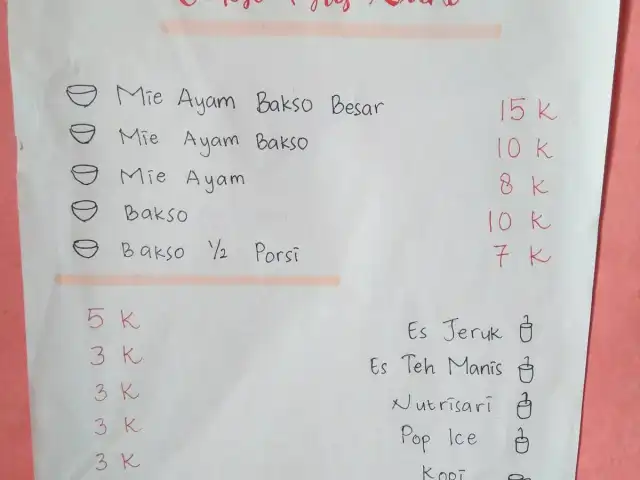 Mie Ayam Bakso Besar 15 K
Mie Ayam Bakso 10 K
Mie Ayam 8 K
Bakso 10 K
Bakso ½ Porsi 7 K
5 K Es Jeruk
3 K Es Teh Manis
3 K Nutrisari
3 K Pop Ice
3 K Kopi